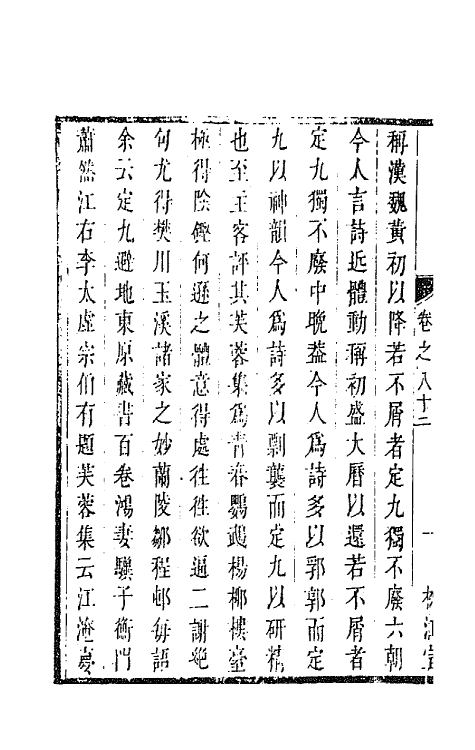 卷之八十二
一
稱漢魏黃初以降若不屑者定九獨不廢六朝
今人言詩近體動稱初盛大曆以還若不屑者
定九獨不廢中晚蓋今人爲詩多以郛郭而定
九以神韻今人爲詩多以剽襲而定九以研精
也至王客評其芙蓉集爲青春鸚鵡楊柳樓臺
極得陰鏗何遜之體意得處徃徃欲逼二謝絶
句尤得樊川玉溪諸家之妙蘭陵鄒程邨每語
余云定九避地東原藏書百卷鴻妻驥子衡門
蕭然江右李太虛宗伯有題芙蓉集云江淹夢